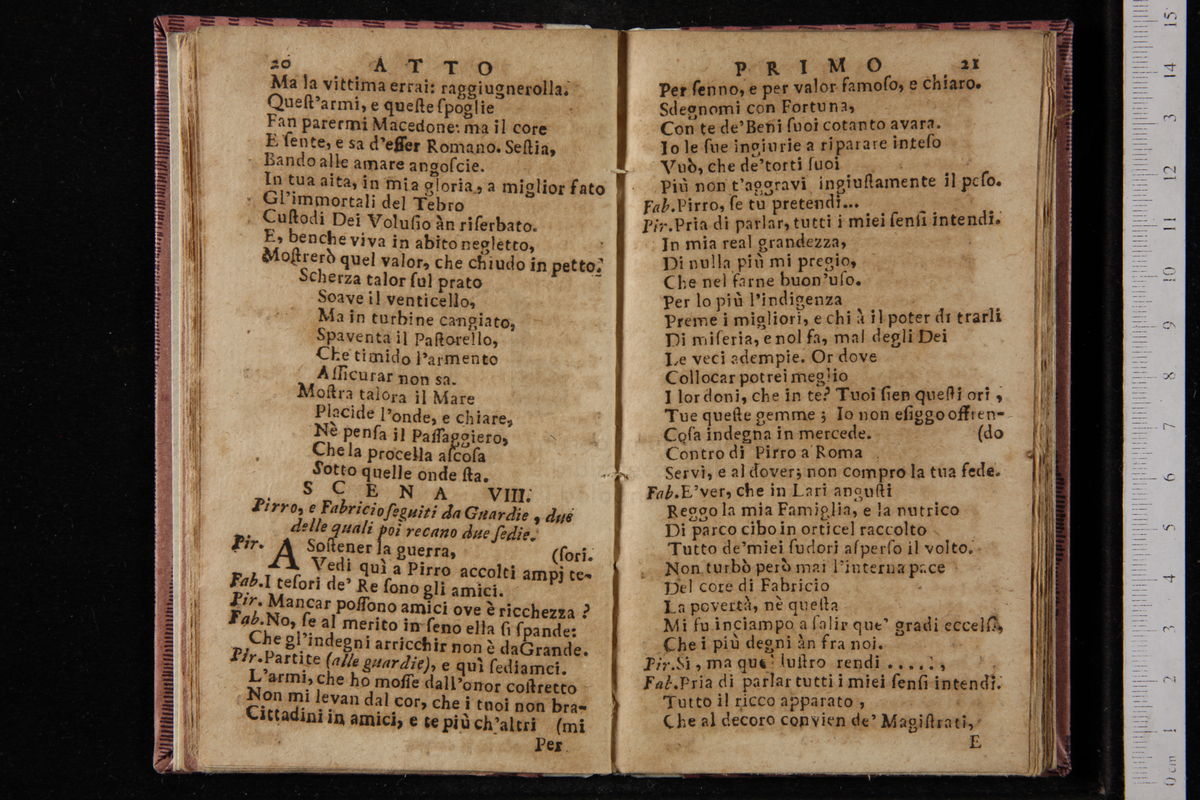 20 ATTO
Ma la vittima errai: raggiugnerolla.
Queſt'armi, e queſte ſpoglie
Fan parermi Macedone: ma il core
E ſente, e sa d'eſſer Romano. Seſtia,
Bando alle amare angoſcie.
In tua aita, in mia gloria, a miglior fato
Gl'immortali del Tebro
Cuſtodi Dei Voluſio àn riſerbato.
E, benche viva in abito negletto,
Moſtrerò quel valor, che chiudo in petto.
Scherza talor ſul prato
Soave il venticello,
Ma in turbine cangiato,
Spaventa il Paſtorello,
Che timido l'armento
Aſſicurar non sa.
Moſtra talora il Mare
Placide l'onde, e chiare,
Nè penſa il Paſſaggiero,
Che la procella aſcoſa
Sotto quelle onde ſta.
SCENA VIII.
Pirro, e Fabricio ſeguiti da Guardie, due
delle quali poi recano due ſedie.
Pir. A Soſtener la guerra, (ſori.
Vedi quì a Pirro accolti ampj te-
Fab.I teſori de' Re ſono gli amici.
Pir. Mancar poſſono amici ove è ricchezza?
Fab.No, ſe al merito in ſeno ella ſi ſpande:
Che gl'indegni arricchir non è da Grande.
Pir.Partite (alle guardie), e quì ſediamci.
L'armi, che ho moſſe dall'onor coſtretto
Non mi levan dal cor, che i tuoi non bra-
Cittadini in amici, e te più ch'altri (mi
Per
PRIMO 21
Per ſenno, e per valor famoſo, e chiaro.
Sdegnomi con Fortuna,
Con te de'Beni ſuoi cotanto avara.
Io le ſue ingiurie a riparare inteſo
Vuò, che de'torti ſuoi
Più non t'aggravi ingiuſtamente il peſo.
Fab.Pirro, ſe tu pretendi...
Pir.Pria di parlar, tutti i miei ſenſi intendi.
In mia real grandezza,
Di nulla più mi pregio,
Che nel farne buon'uſo.
Per lo più l'indigenza
Preme i migliori, e chi à il poter di trarli
Di miſeria, e nol fa, mal degli Dei
Le veci adempie. Or dove
Collocar potrei meglio
I lor doni, che in te? Tuoi ſien queſti ori,
Tue queſte gemme; Io non eſiggo offren-
Coſa indegna in mercede. (do
Contro di Pirro a Roma
Servi, e al dover; non compro la tua fede.
Fab.E'ver, che in Lari anguſti
Reggo la mia Famiglia, e la nutrico
Di parco cibo in orticel raccolto
Tutto de'miei ſudori aſperſo il volto.
Non turbò però mai l'interna pace
Del core di Fabricio
La povertà, nè queſta
Mi fu inciampo a ſalir que' gradi eccelſi,
Che i più degni àn fra noi.
Pir.Sì, ma que' luſtro rendi .....,
Fab.Pria di parlar tutti i miei ſenſi intendi.
Tutto il ricco apparato,
Che al decoro convien de' Magiſtrati,
E
0 cm 1 2 3 4 5 6 7 8 9 10 11 12 3 14 15